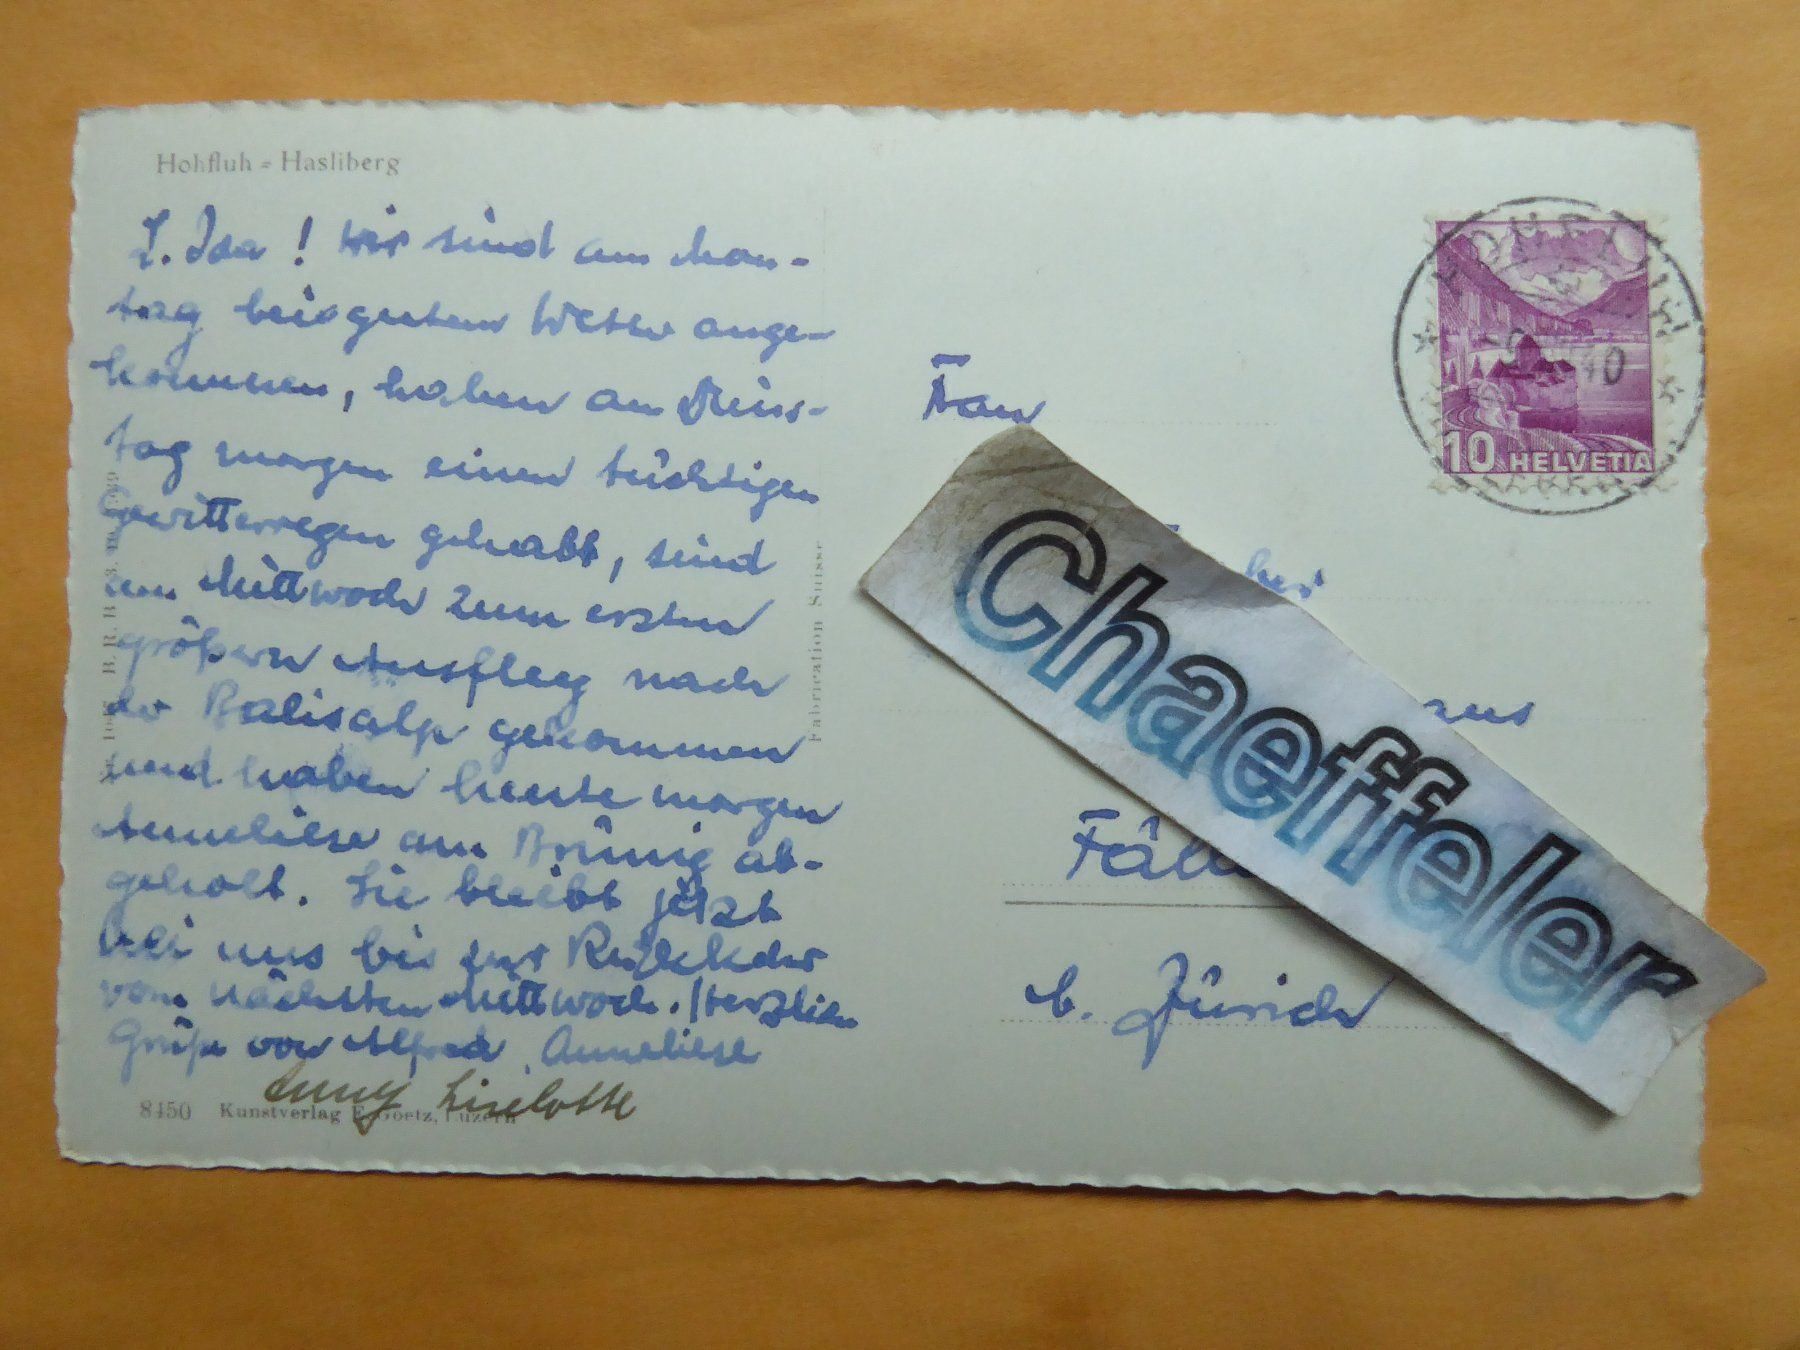 Hohfluh - Hasliberg
L. Ida! Wir sind am Mon-
tag bei gutem Wetter ange-
kommen, haben am Diens-
tag morgen einen tüchtigen
Gewitterregen gehabt, sind
am Mittwoch zum ersten
größern Ausflug nach
der Balisalp gekommen
und haben heute morgen
Anneliese am Brünig ab-
geholt. Sie bleibt jetzt
bei uns bis zur Rückkehr
vom nächsten Mittwoch. Herzlichen
Grüße von Alfred, Anneliese
Anny Liselotte
8450 Kunstverlag E. Goetz, Luzern
Fabrication Suisse
HOHFLUH
40
10 HELVETIA
Frau
bei
aus
b. Zürich
Chaeffeler